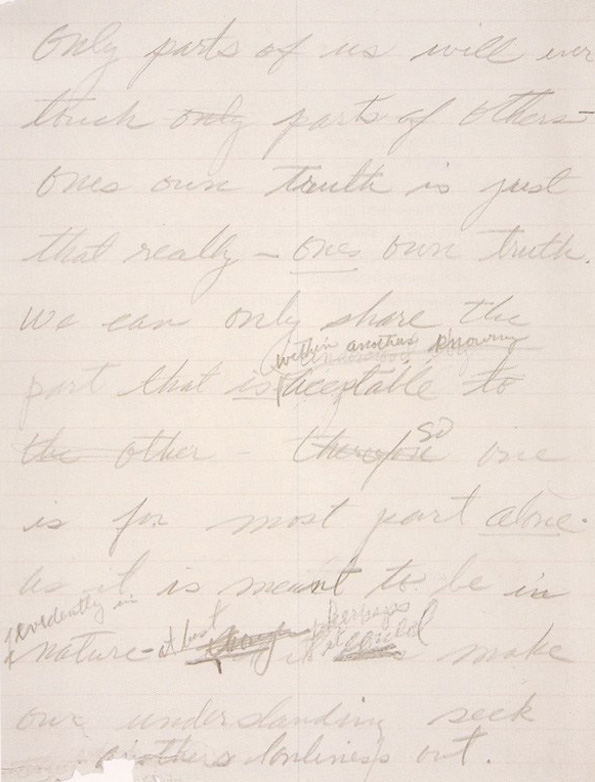 Only parts of us will ever
touch only parts of others –
ones own truth is just
that really – ones own truth.
We can only share the
within anothers knowing
part that is acceptable to
the other – therefore so one
is for most part alone.
As it is meant to be in
evidently in
nature – at best though perhaps it could make
our understanding seek
anothers lonliness out.